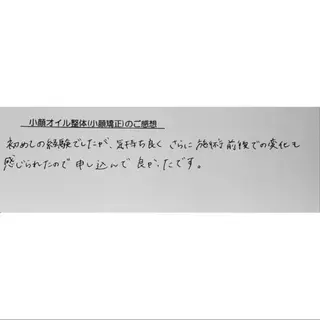 小顔オイル整体(小顔矯正)のご感想
初めての経験でしたが、気持ち良く さらに 施術前後での変化も
感じられたので 申し込んで 良かったです。